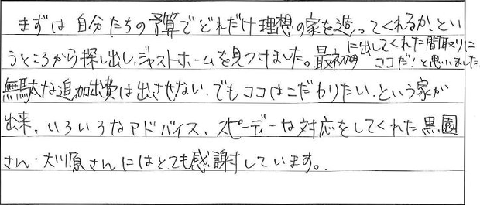 まずは自分たちの予算でどれだけ理想の家を造ってくれるか、とい
うところから探し出し、ジャストホームを見つけました。最初に出してくれた間取りに
ココだ!と思いました。
無駄な追加出費は出させない、でもココはこだわりたい、という家が
出来、いろいろなアドバイス、スピーディーな対応をしてくれた黒園
さん、大川原さんにはとても感謝しています。